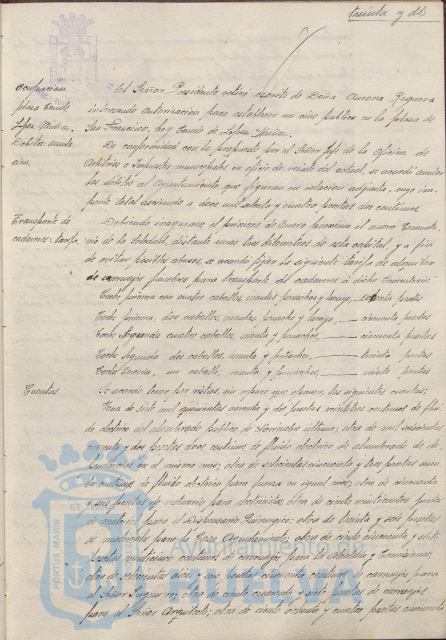 treinta y dos
El Señor Presidente retiró escrito de Doña Aurora Requena
interesando autorización para establecer un cine público en la plaza de
San Francisco, hoy Conde de López Muñoz.
De conformidad con lo propuesto por el Señor Jefe de la oficina de
Arbitrios e Impuestos municipales en oficio de veinte del actual, se acordó anular
los débitos al Ayuntamiento que figuran en relación adjunta, cuyo im-
porte total asciende a doce mil ochenta y cuatro pesetas dos céntimos.
Transporte de
cadáveres: tarifa.
Debiendo inaugurarse el primero de Enero próximo el nuevo Cemente-
rio de la Soledad, distante unos tres kilómetros de esta capital, y a fin
de evitar posibles abusos, se acordó fijar la siguiente tarifa de alquiler
de carruajes fúnebres para transporte de cadáveres a dicho Cementerio:
Coche primera con cuatro caballos, mantas, penachos y lacayo, pesetas
Coche primera, dos caballos, mantas, penacho y lacayo, cincuenta pesetas
Coche segunda cuatro caballos, mantas y penachos, cincuenta pesetas
Coche segunda dos caballos, manta y penachos, treinta pesetas
Coche tercera, un caballo, manta y penachos, veinte pesetas
Cuentas
Se acordó tener por vistas, sin reparo que oponer, las siguientes cuentas:
Una de siete mil quinientas noventa y dos pesetas veintitrés céntimos de flui-
do eléctrico del alumbrado público de Noviembre último; otra de mil seiscientas
cincuenta y dos pesetas doce céntimos de fluido eléctrico de alumbrado de de-
pendencias en el mismo mes; otra de setecientas cincuenta y tres pesetas
céntimos de fluido eléctrico para fuerza en igual mes; otra de cincuenta
y seis pesetas de vestuario para electricista; otra de ciento veinticuatro pesetas
de material para el Dispensario Quirúrgico; otra de treinta y seis pesetas
de materiales para la Casa Ayuntamiento; otra de ciento cincuenta y siete
pesetas céntimos de carruajes para la Alcaldía y Comisiones;
otra de pesetas cincuenta céntimos de carruajes para
el Señor Ingeniero; otra de ciento cuarenta y siete pesetas de carruajes
para el Señor Arquitecto; otra de ciento ochenta y cuatro pesetas cincuenta
PORTUS MARIS ET
Ayuntamiento de
HUELVA